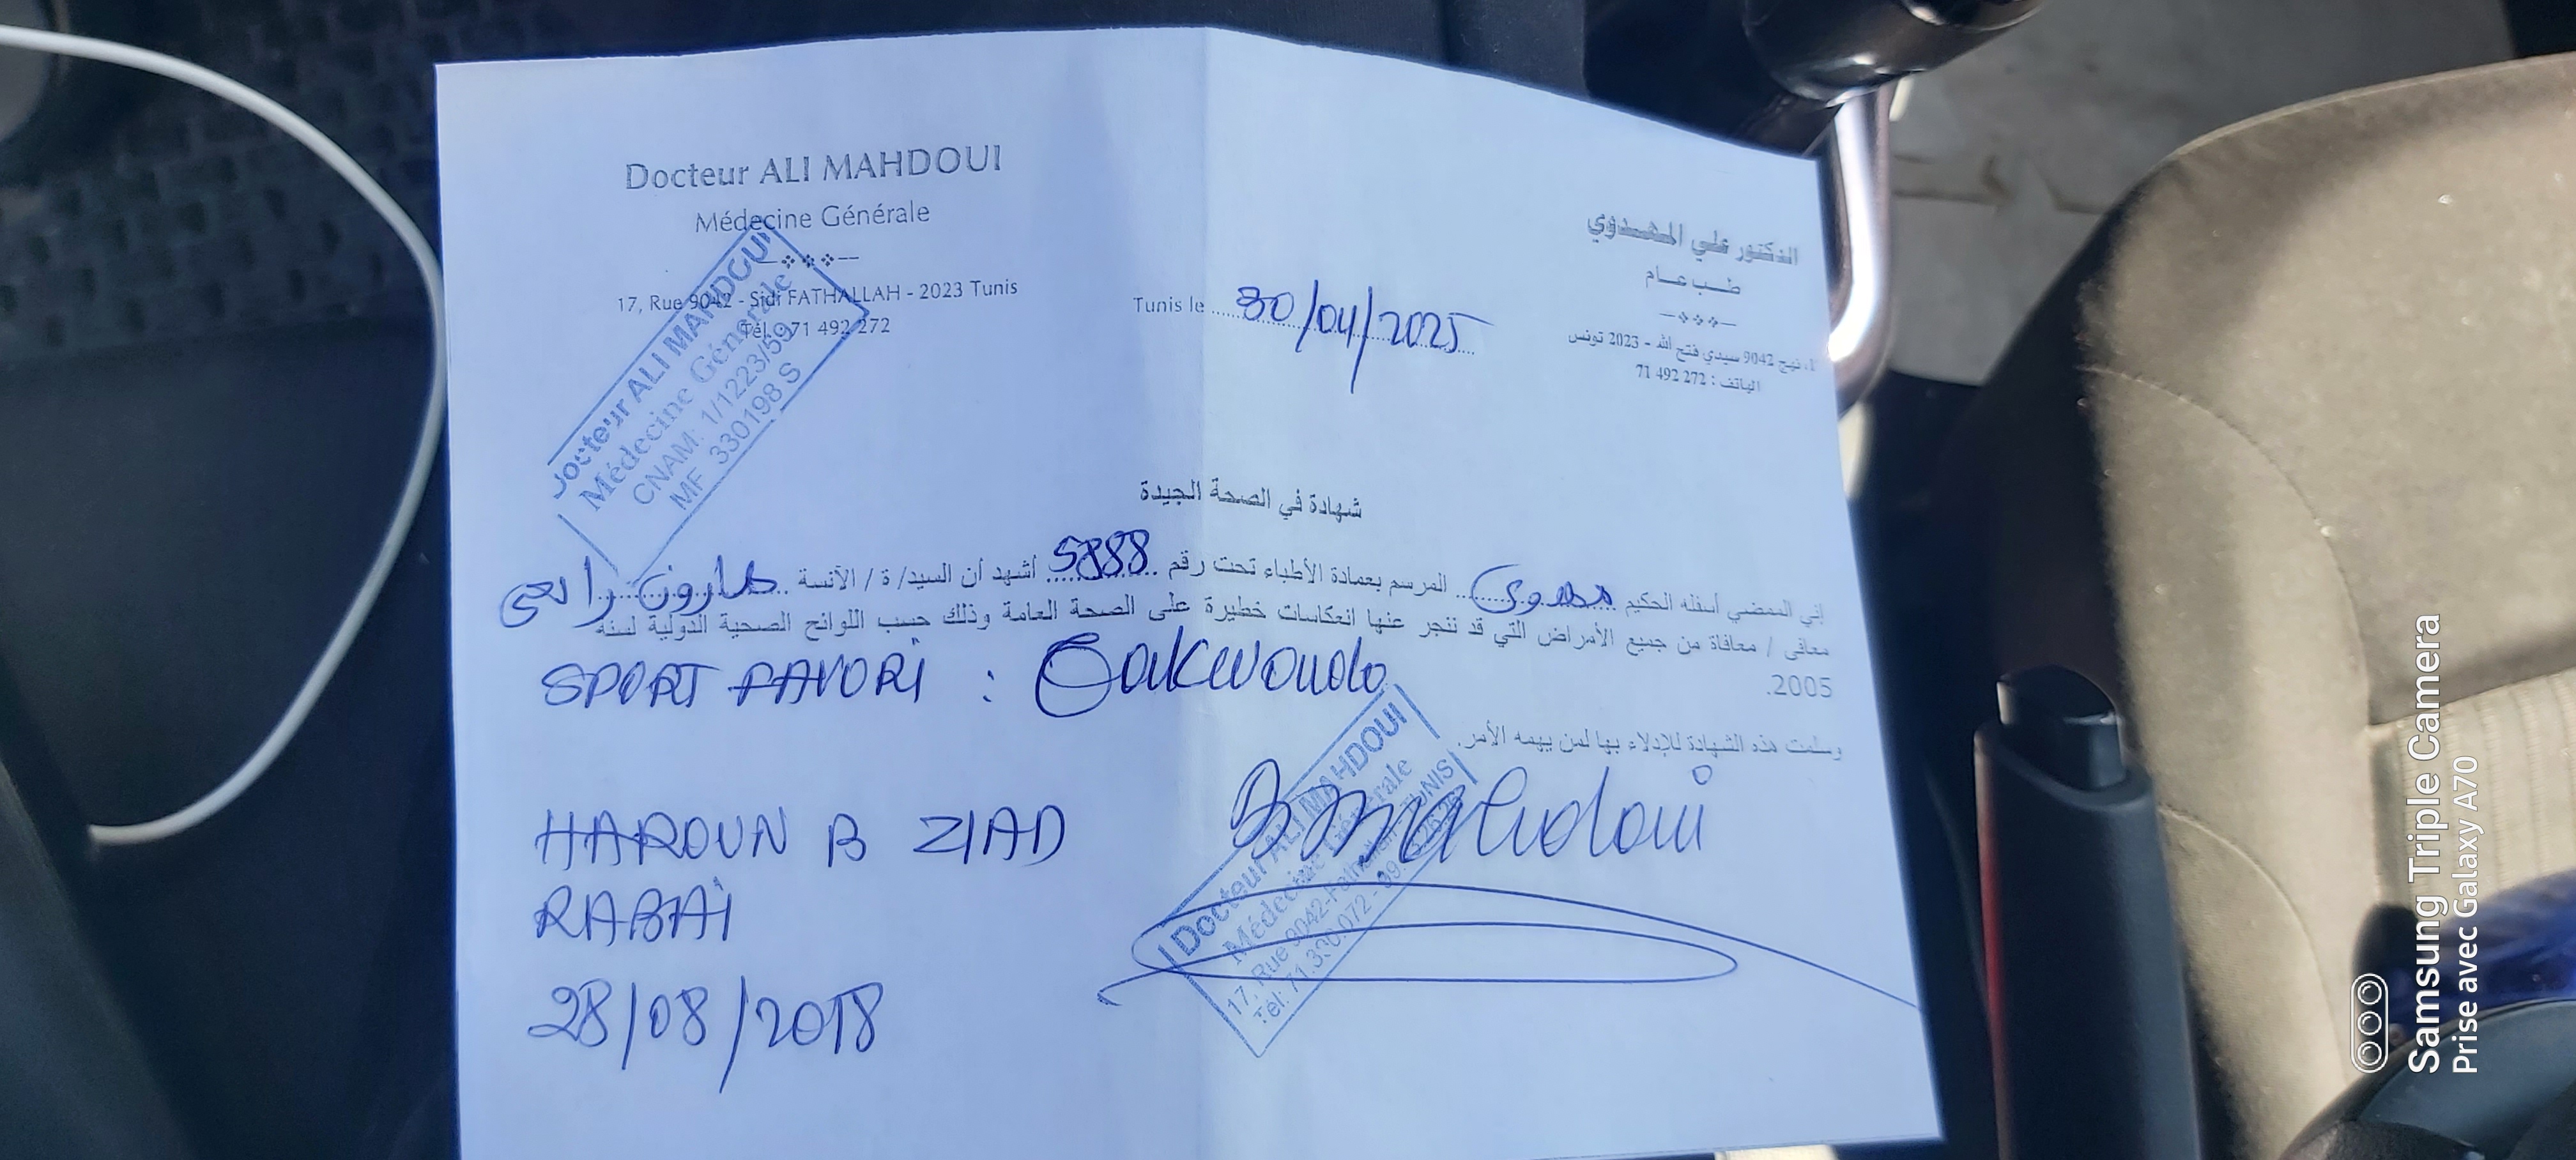 Docteur ALI MAHDOUI
Médecine Générale
17, Rue 9042 - Sidi FATHALLAH - 2023 Tunis
Tél. : 71 492 272
الدكتور علي المهدوي
طب عام
نهج 9042 سيدي فتح الله - 2023 تونس
الهاتف : 272 492 71
Tunis le 30/04/2025
Docteur ALI MAHDOUI
Médecine Générale
CNAM: 1/1223/59
MF 330198 S
شهادة في الصحة الجيدة
إني الممضي أسفله الحكيم مهدوي المرسم بعمادة الأطباء تحت رقم 5888 أشهد أن السيد/ ة / الآنسة هارون رابعي
معافى / معافاة من جميع الأمراض التي قد تنجر عنها انعكاسات خطيرة على الصحة العامة وذلك حسب اللوائح الصحية الدولية لسنة
2005.
SPORT FAVORI : Taekwondo
وسلمت هذه الشهادة للإدلاء بها لمن يهمه الأمر.
HAROUN B ZIAD
RABAI
28/08/2018
Mahdoui
Docteur ALI MAHDOUI
Médecine Générale
17, Rue 9042-Fathallah-TUNIS
Tél: 71.330.072
Samsung Triple Camera
Prise avec Galaxy A70